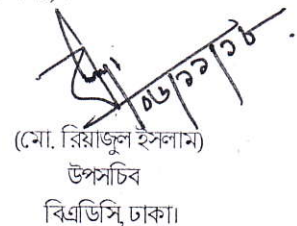 ০৬/১১/১৮
(মো. রিয়াজুল ইসলাম)
উপসচিব
বিএডিসি, ঢাকা।